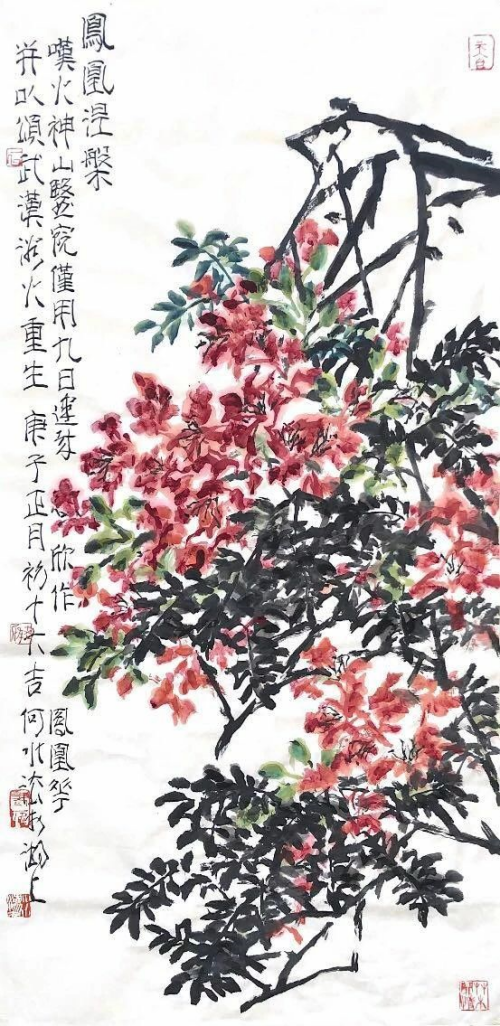 鳳凰涅槃
嘆火神山醫院僅用九日建成 欣作 鳳凰華
并以頌武漢浴火重生 庚子正月初十大吉 何水法於湖上